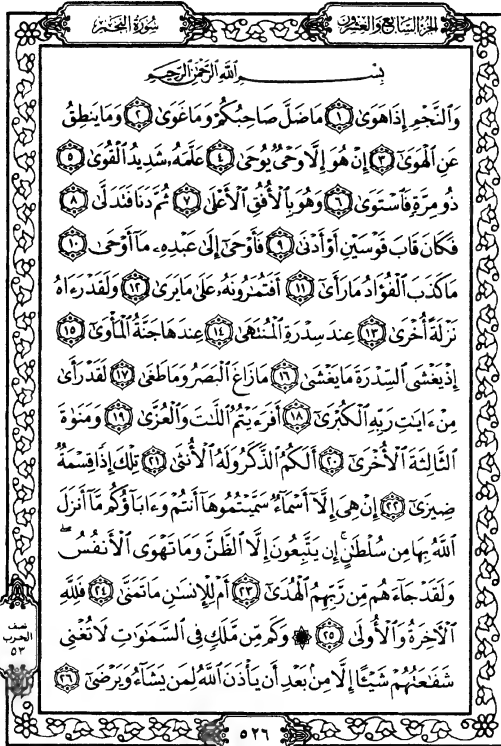 الجزء السابع والعشرون
سورة النجم
بِسْمِ اللَّهِ الرَّحْمَٰنِ الرَّحِيمِ
وَالنَّجْمِ إِذَا هَوَىٰ ١ مَا ضَلَّ صَاحِبُكُمْ وَمَا غَوَىٰ ٢ وَمَا يَنطِقُ
عَنِ الْهَوَىٰ ٣ إِنْ هُوَ إِلَّا وَحْيٌ يُوحَىٰ ٤ عَلَّمَهُ شَدِيدُ الْقُوَىٰ ٥
ذُو مِرَّةٍ فَاسْتَوَىٰ ٦ وَهُوَ بِالْأُفُقِ الْأَعْلَىٰ ٧ ثُمَّ دَنَا فَتَدَلَّىٰ ٨
فَكَانَ قَابَ قَوْسَيْنِ أَوْ أَدْنَىٰ ٩ فَأَوْحَىٰ إِلَىٰ عَبْدِهِ مَا أَوْحَىٰ ١٠
مَا كَذَبَ الْفُؤَادُ مَا رَأَىٰ ١١ أَفَتُمَارُونَهُ عَلَىٰ مَا يَرَىٰ ١٢ وَلَقَدْ رَءَاهُ
نَزْلَةً أُخْرَىٰ ١٣ عِندَ سِدْرَةِ الْمُنتَهَىٰ ١٤ عِندَهَا جَنَّةُ الْمَأْوَىٰ ١٥
إِذْ يَغْشَى السِّدْرَةَ مَا يَغْشَىٰ ١٦ مَا زَاغَ الْبَصَرُ وَمَا طَغَىٰ ١٧ لَقَدْ رَأَىٰ
مِنْ ءَايَٰتِ رَبِّهِ الْكُبْرَىٰ ١٨ أَفَرَءَيْتُمُ اللَّٰتَ وَالْعُزَّىٰ ١٩ وَمَنَوٰةَ
الثَّالِثَةَ الْأُخْرَىٰ ٢٠ أَلَكُمُ الذَّكَرُ وَلَهُ الْأُنثَىٰ ٢١ تِلْكَ إِذًا قِسْمَةٌ
ضِيزَىٰ ٢٢ إِنْ هِيَ إِلَّا أَسْمَاءٌ سَمَّيْتُمُوهَا أَنتُمْ وَءَابَاؤُكُم مَّا أَنزَلَ
اللَّهُ بِهَا مِن سُلْطَٰنٍ ۚ إِن يَتَّبِعُونَ إِلَّا الظَّنَّ وَمَا تَهْوَى الْأَنفُسُ ۖ
وَلَقَدْ جَاءَهُم مِّن رَّبِّهِمُ الْهُدَىٰ ٢٣ أَمْ لِلْإِنسَٰنِ مَا تَمَنَّىٰ ٢٤ فَلِلَّهِ
الْآخِرَةُ وَالْأُولَىٰ ٢٥ ۞ وَكَم مِّن مَّلَكٍ فِي السَّمَٰوَٰتِ لَا تُغْنِي
شَفَٰعَتُهُمْ شَيْـًٔا إِلَّا مِن بَعْدِ أَن يَأْذَنَ اللَّهُ لِمَن يَشَاءُ وَيَرْضَىٰ ٢٦
نصف
الحزب
٥٣
٥٢٦